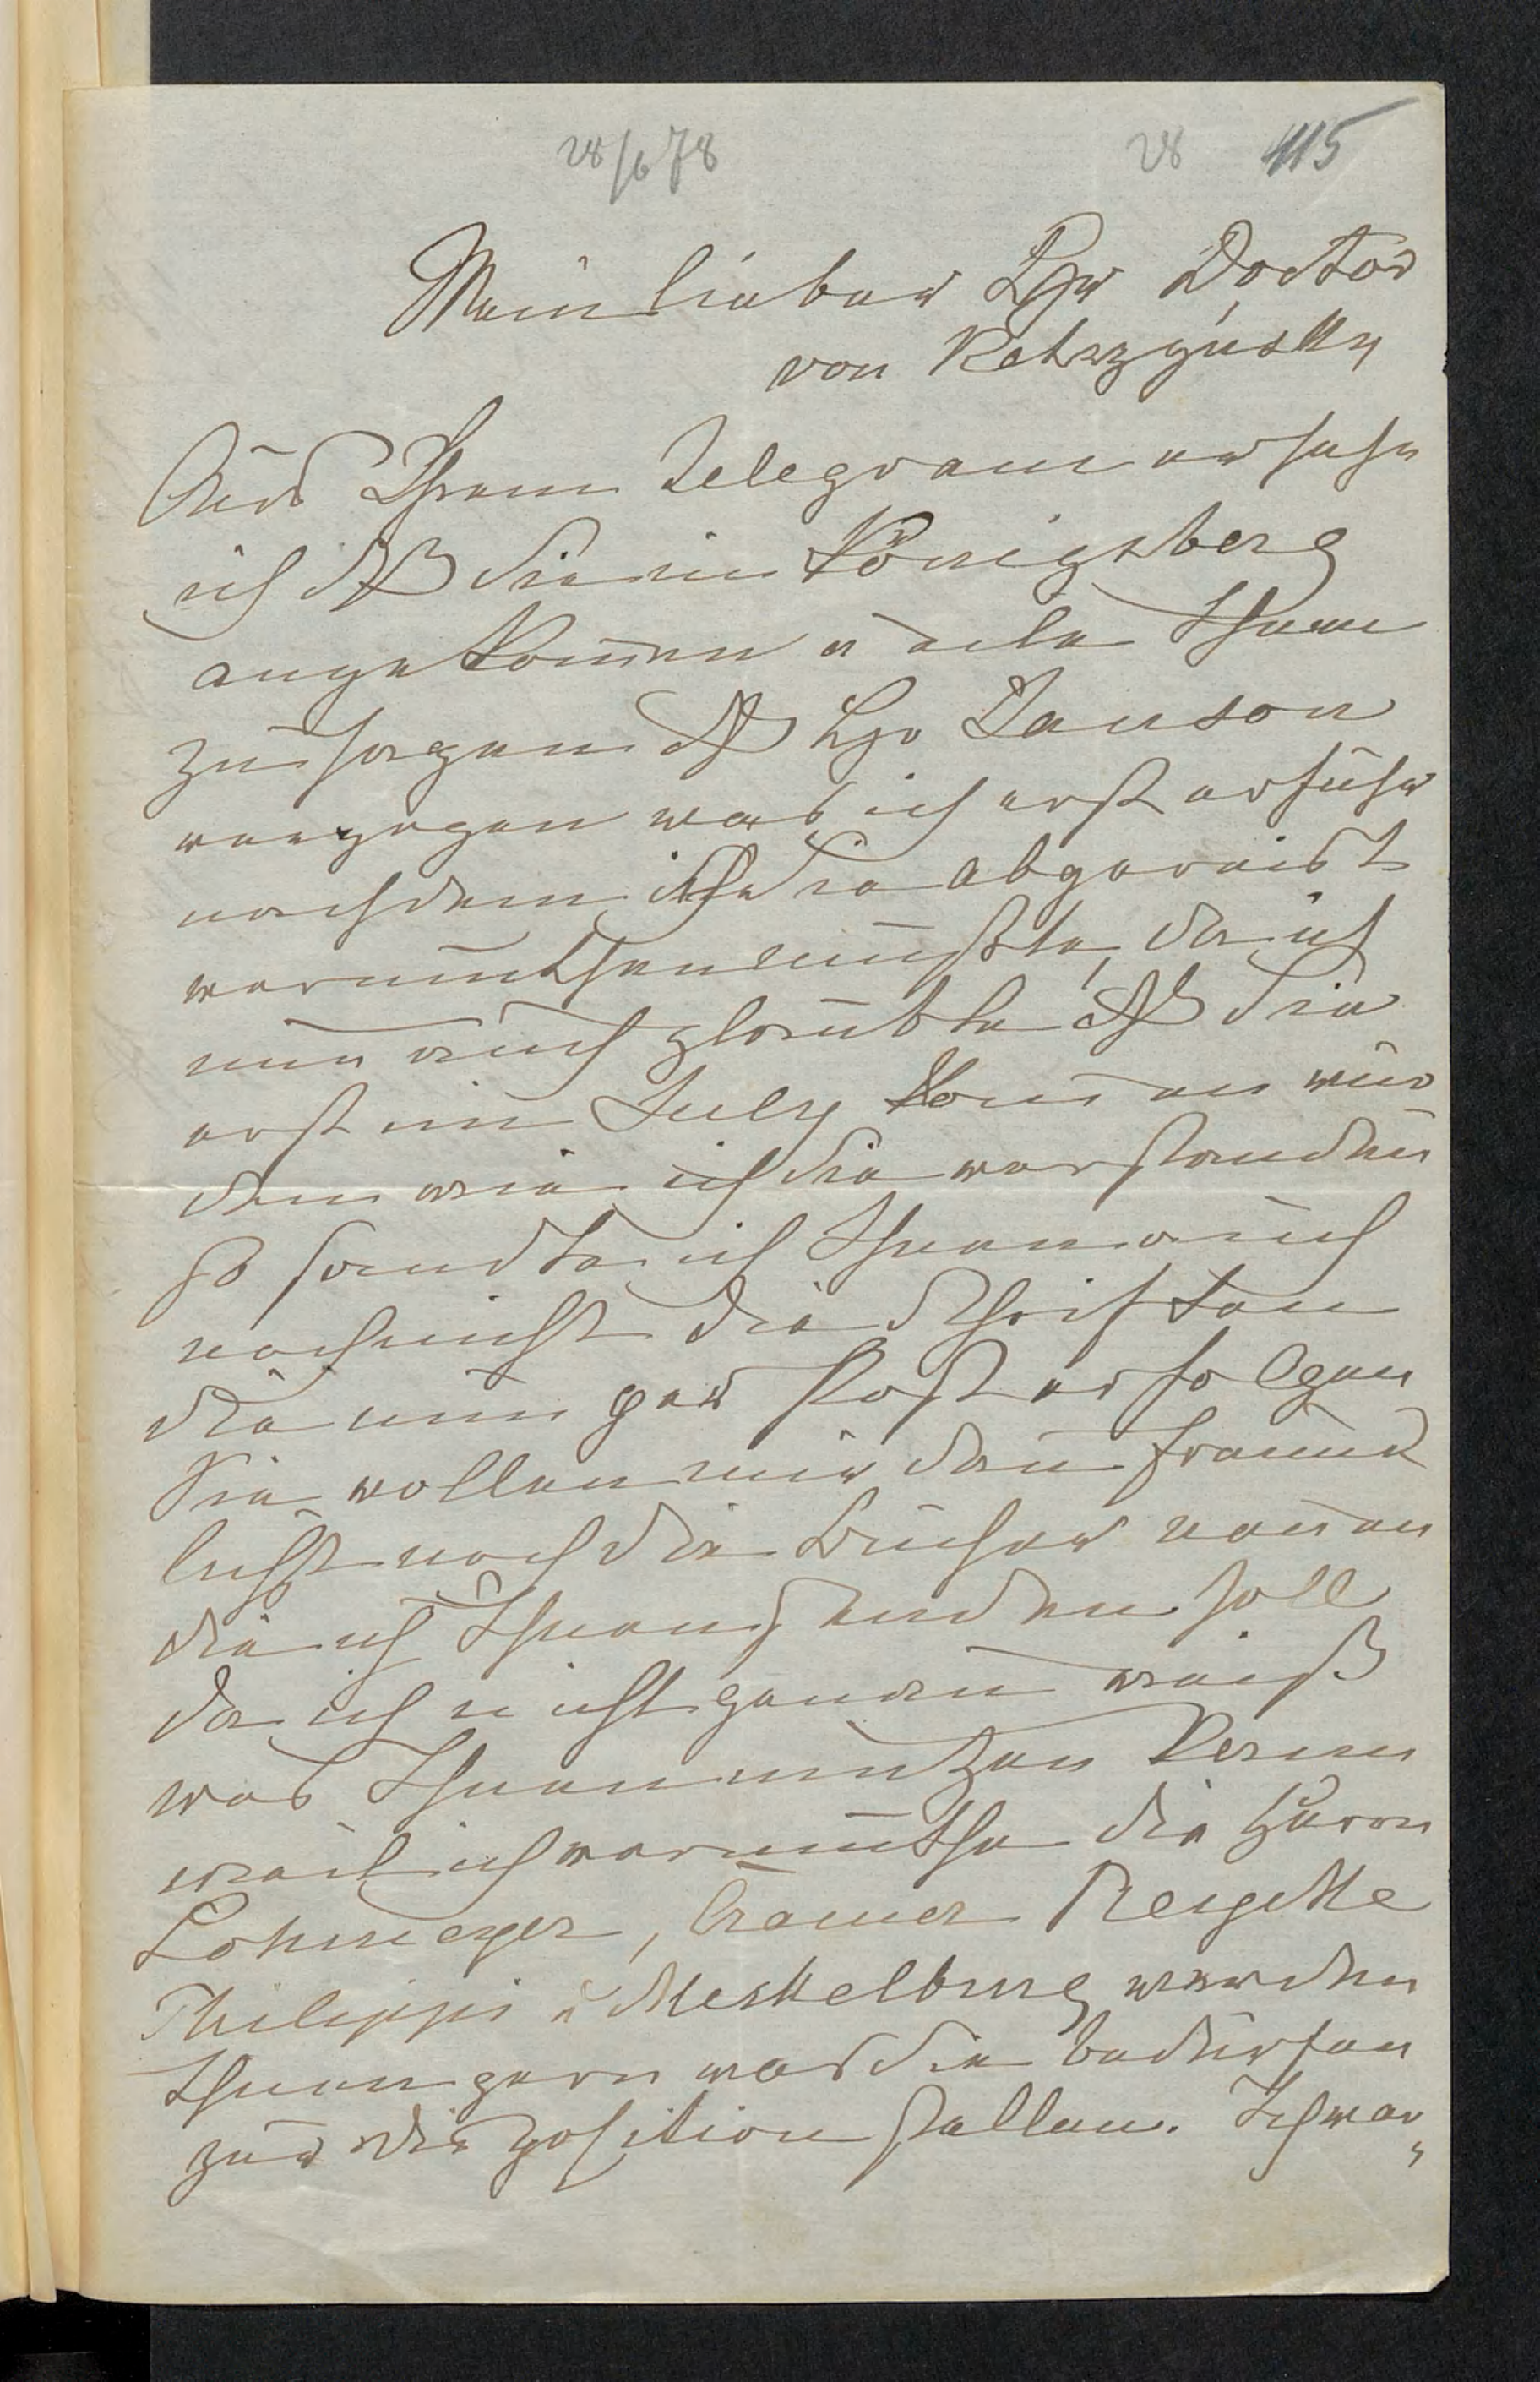 28/6 78
28 415
Mein lieber Hr Doctor
von Ketrzyńsky
Aus Ihrem Telegram ersehe
ich dß Sie in Königsberg
angekom̄en u eile Ihnen
zu sagen dß Hr Janson
verzogen was ich erst erfuhr
nachdem ich Sie abgereist
vermuthen mußte, da ich
nun auch glaubte dß Sie
erst im July kom̄en wür
den wie ich Sie verstanden
so sandte ich Ihnen auch
noch nicht die Schriften
die nun per Post erfolgen
Sie wollen mir dan̄ freund
lichst noch die Bücher nen̄en
die ich Ihnen senden soll
da ich nicht genau weiß
was Ihnen nutzen kann
weil ich vermuthe die Herrn
Lohmeyer, Cramer Reicke
Philippi u Meckelburg werden
Ihnen gern was Sie bedürfen
zur Disposition stellen. Ich war„